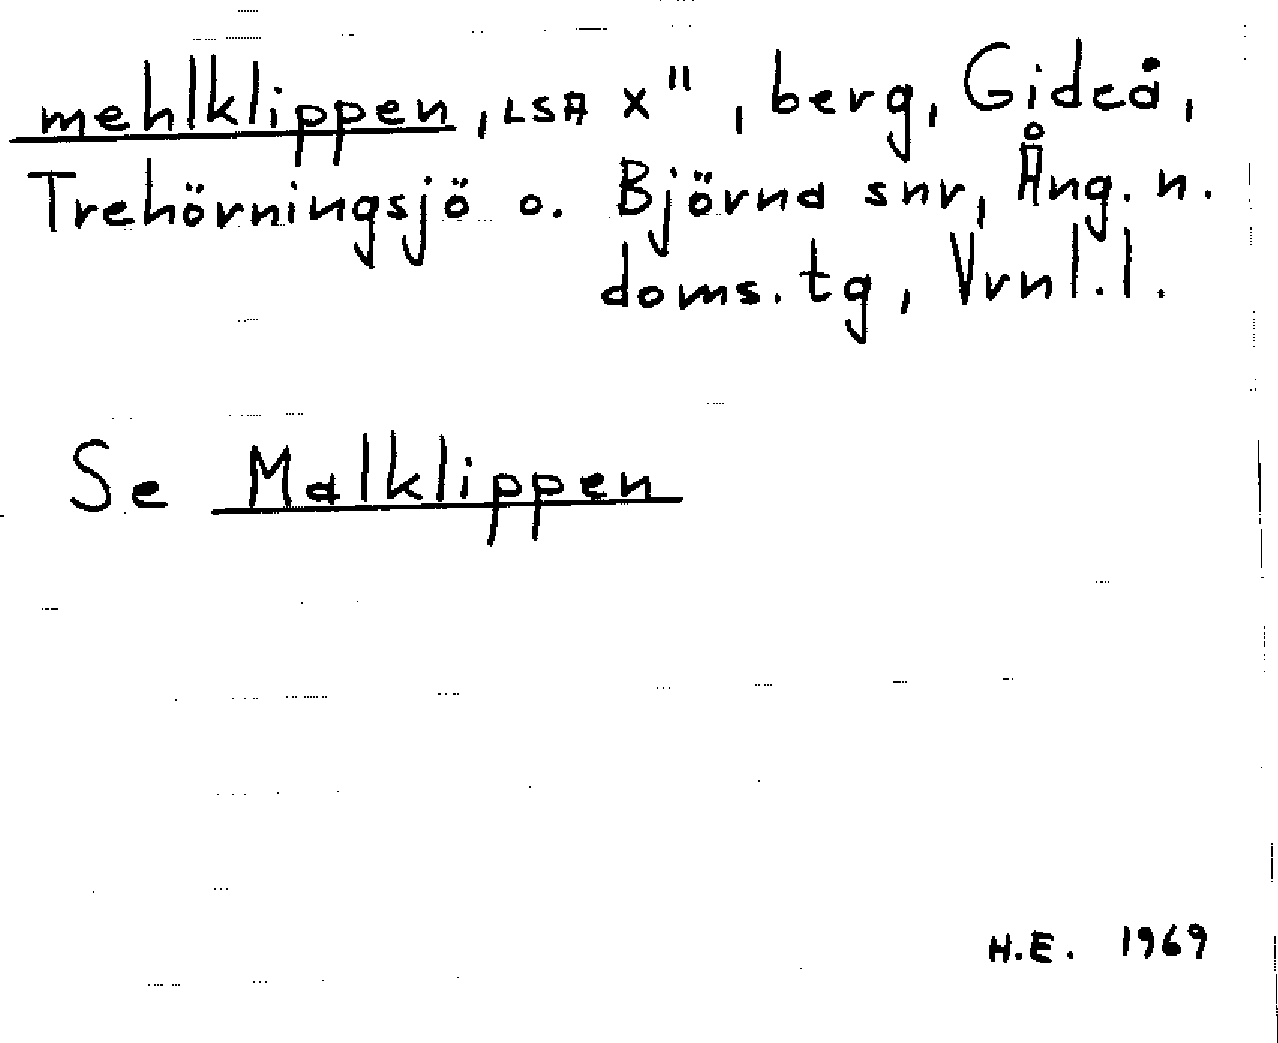 mehlklippen, LSA x", berg, Gideå,
Trehörningsjö o. Björna snr, Ång. n.
doms. tg, Vrnl. l.
Se Malklippen
H.E. 1969